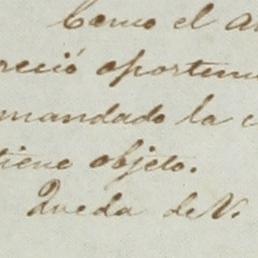 Como el a
reció oportenu
mandado la c
tiene objeto.
Queda de V.